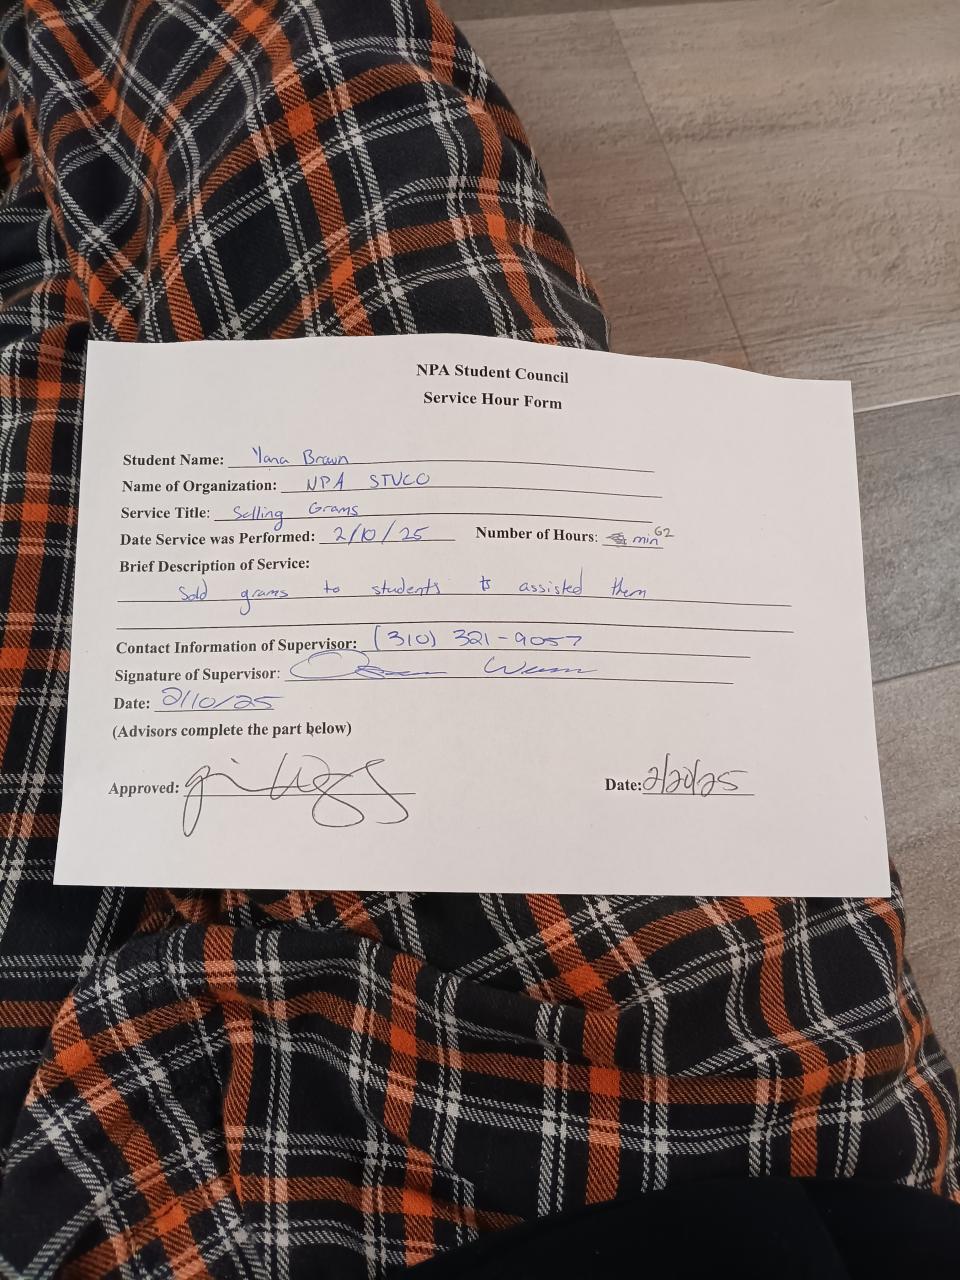 NPA Student Council
Service Hour Form
Student Name: Yana Brown
Name of Organization: NPA STUCO
Service Title: Selling Grams
Date Service was Performed: 2/10/25 Number of Hours: min 62
Brief Description of Service:
Sold grams to students assisted them
Contact Information of Supervisor: (310) 321-9057
Signature of Supervisor:
Date: 2/10/25
(Advisors complete the part below)
Approved:
Date: 2/20/25